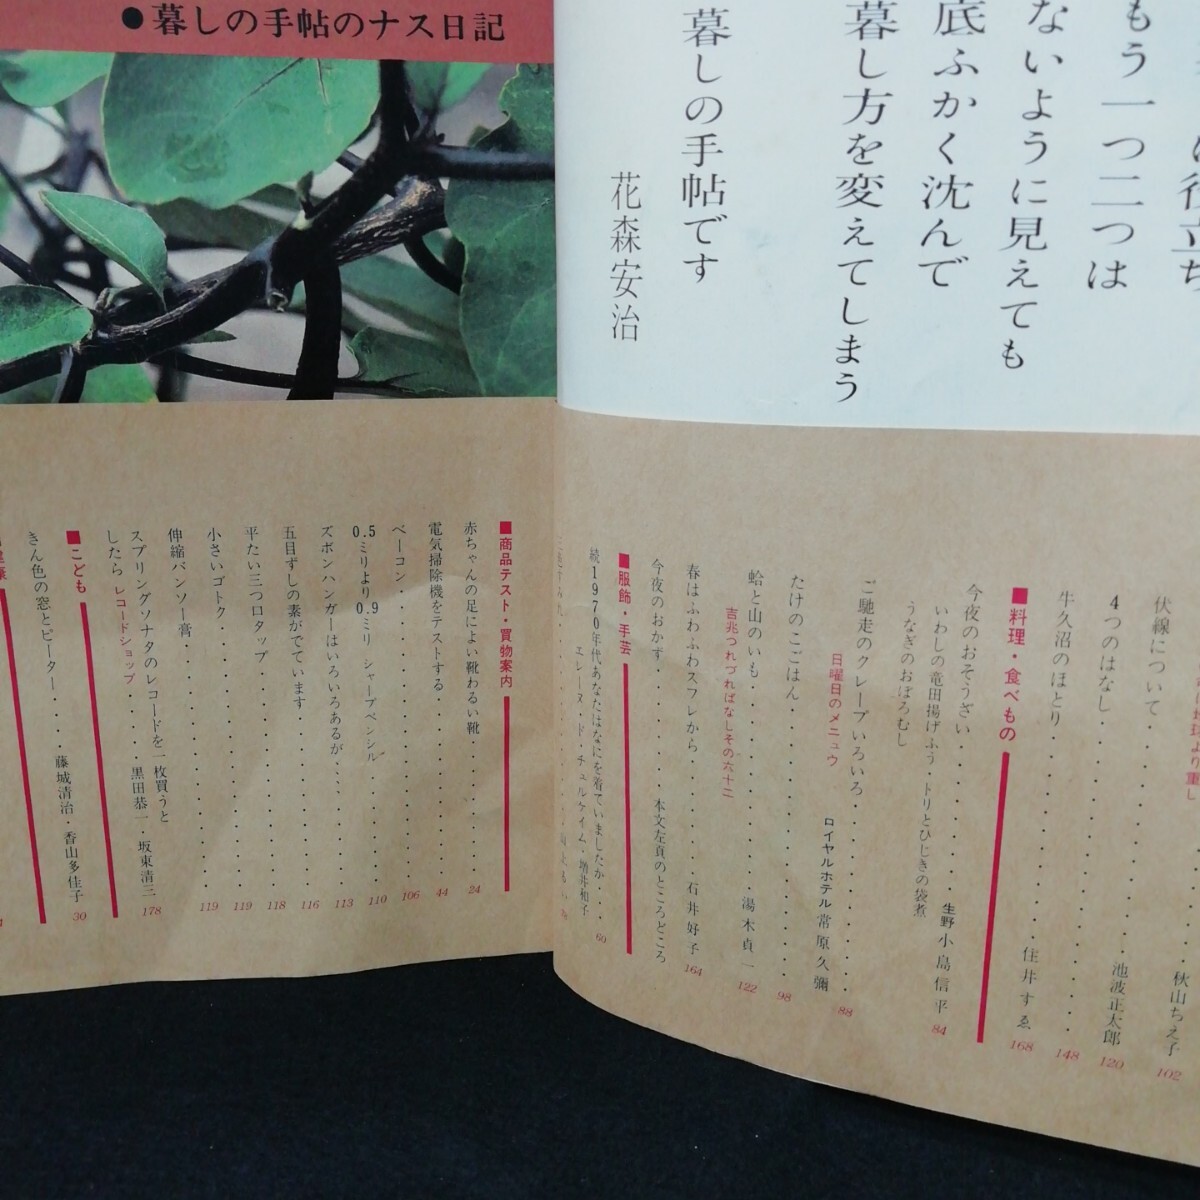 もう一つ二つは
ないように見えても
底ふかく沈んで
暮し方を変えてしまう
暮しの手帖です
花森安治
●暮しの手帖のナス日記
伏線について 秋山ちえ子 102
4つのはなし 池波正太郎 120
牛久沼のほとり 住井すゑ 168
148
■料理・食べもの
今夜のおそうざい 生野 小島信平 84
いわしの竜田揚げふう・トリとひじきの袋煮
うなぎのおぼろむし
ご馳走のクレープいろいろ 88
日曜日のメニュウ ロイヤルホテル 常原久彌
たけのこごはん 98
蛤と山のいも 湯木貞一 122
吉兆つれづればなしその六十二
春はふわふわスフレから 石井好子 164
今夜のおかず 本文左頁のところどころ
■服飾・手芸
続1970年代あなたはなにを着ていましたか 60
エレーヌ・ド・チュルケイム・増井和子
■商品テスト・買物案内
赤ちゃんの足によい靴わるい靴 24
電気掃除機をテストする 44
ベーコン 106
0.5ミリより0.9ミリ シャープペンシル 110
ズボンハンガーはいろいろあるが 113
五目ずしの素がでています 116
平たい三つ口タップ 118
小さいゴトク 119
伸縮バンソー膏 119
スプリングソナタのレコードを一枚買うと
したら レコードショップ 黒田恭一・坂東清三 178
■こども
きん色の窓とピーター 藤城清治・香山多佳子 30